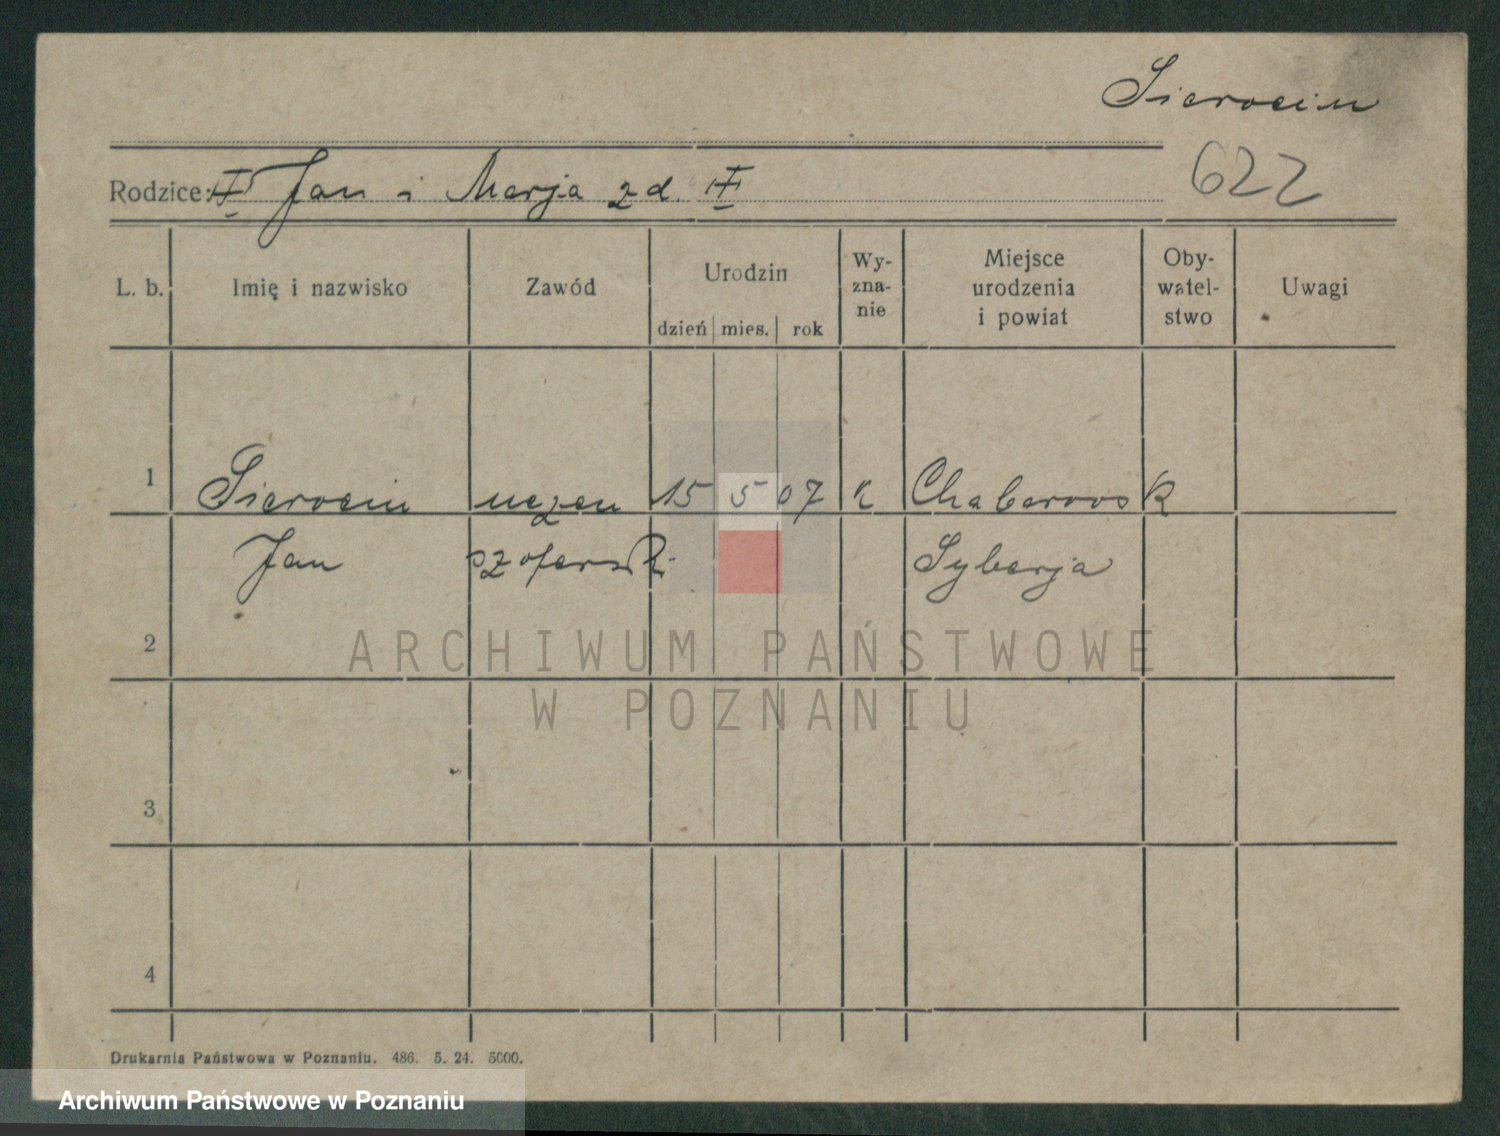 Sierocin
622
Rodzice: Jan i Marja z d.
L. b. Imię i nazwisko Zawód Urodzin dzień mies. rok Wy-zna-nie Miejsce urodzenia i powiat Oby-watel-stwo Uwagi
1 Sierocin uczen 15 5 07 k Chabarowsk
Jan szoferski Syberja
2
ARCHIWUM PAŃSTWOWE
W POZNANIU
3
4
Drukarnia Państwowa w Poznaniu. 486. 5. 24. 5000.
Archiwum Państwowe w Poznaniu